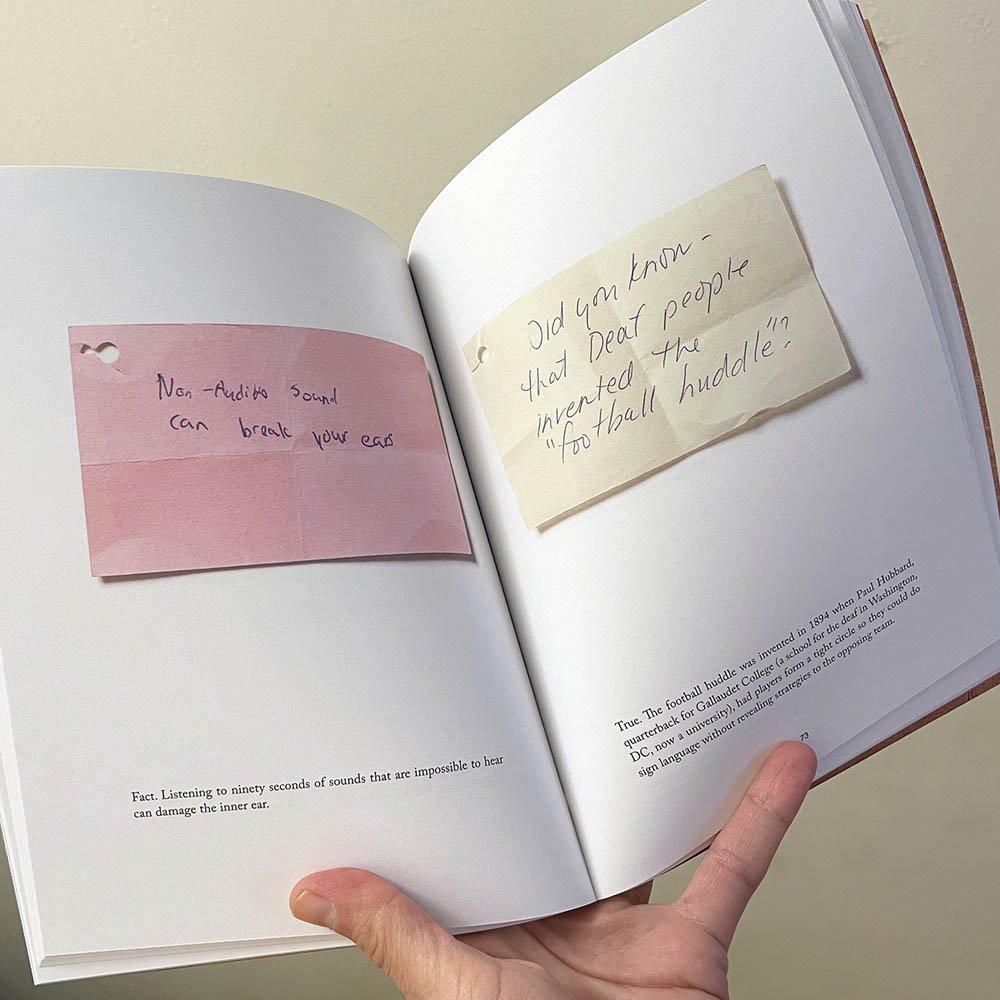 Non-Audible Sound
can break your ears
Fact. Listening to ninety seconds of sounds that are impossible to hear
can damage the inner ear.
Did you know -
that Deaf people
invented the
"football huddle"?
True. The football huddle was invented in 1894 when Paul Hubbard,
quarterback for Gallaudet College (a school for the deaf in Washington,
DC, now a university), had players form a tight circle so they could do
sign language without revealing strategies to the opposing team.
73